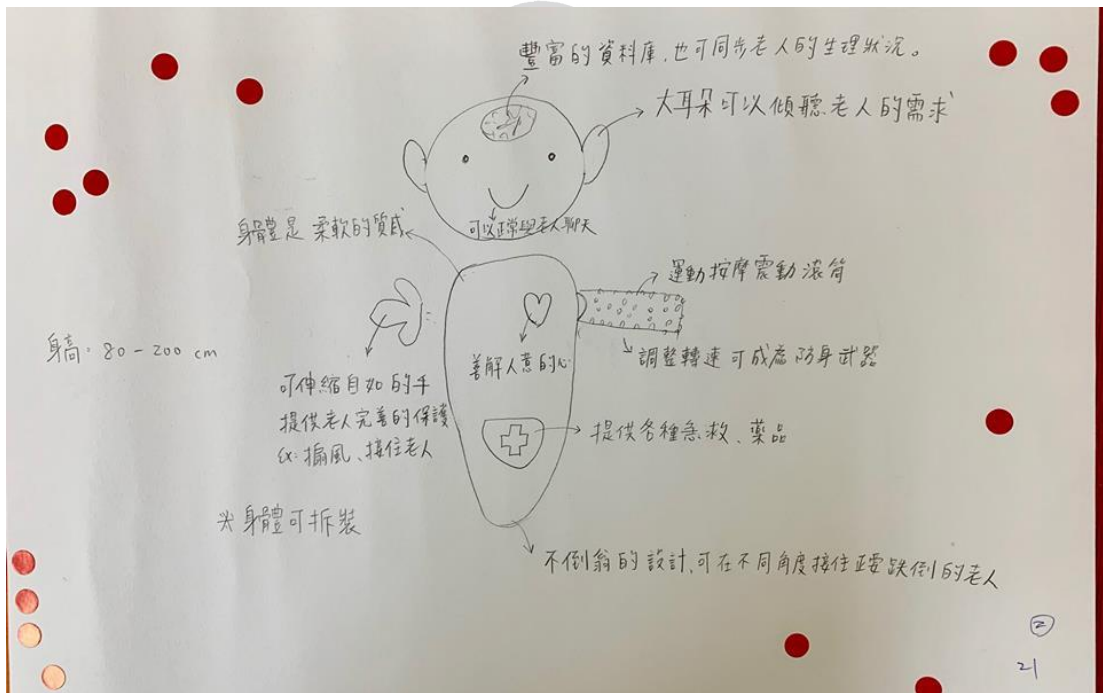 豐富的資料庫,也可同步老人的生理狀況。
大耳朵可以傾聽老人的需求
可以正常與老人聊天
身體是柔軟的質感
運動按摩震動滾筒
調整轉速可成為防身武器
善解人意的心
身高:80-200 cm
可伸縮自如的手
提供老人完善的保護
ex:搧風、接住老人
提供各種急救、藥品
※身體可拆裝
不倒翁的設計,可在不同角度接住正要跌倒的老人
②
21